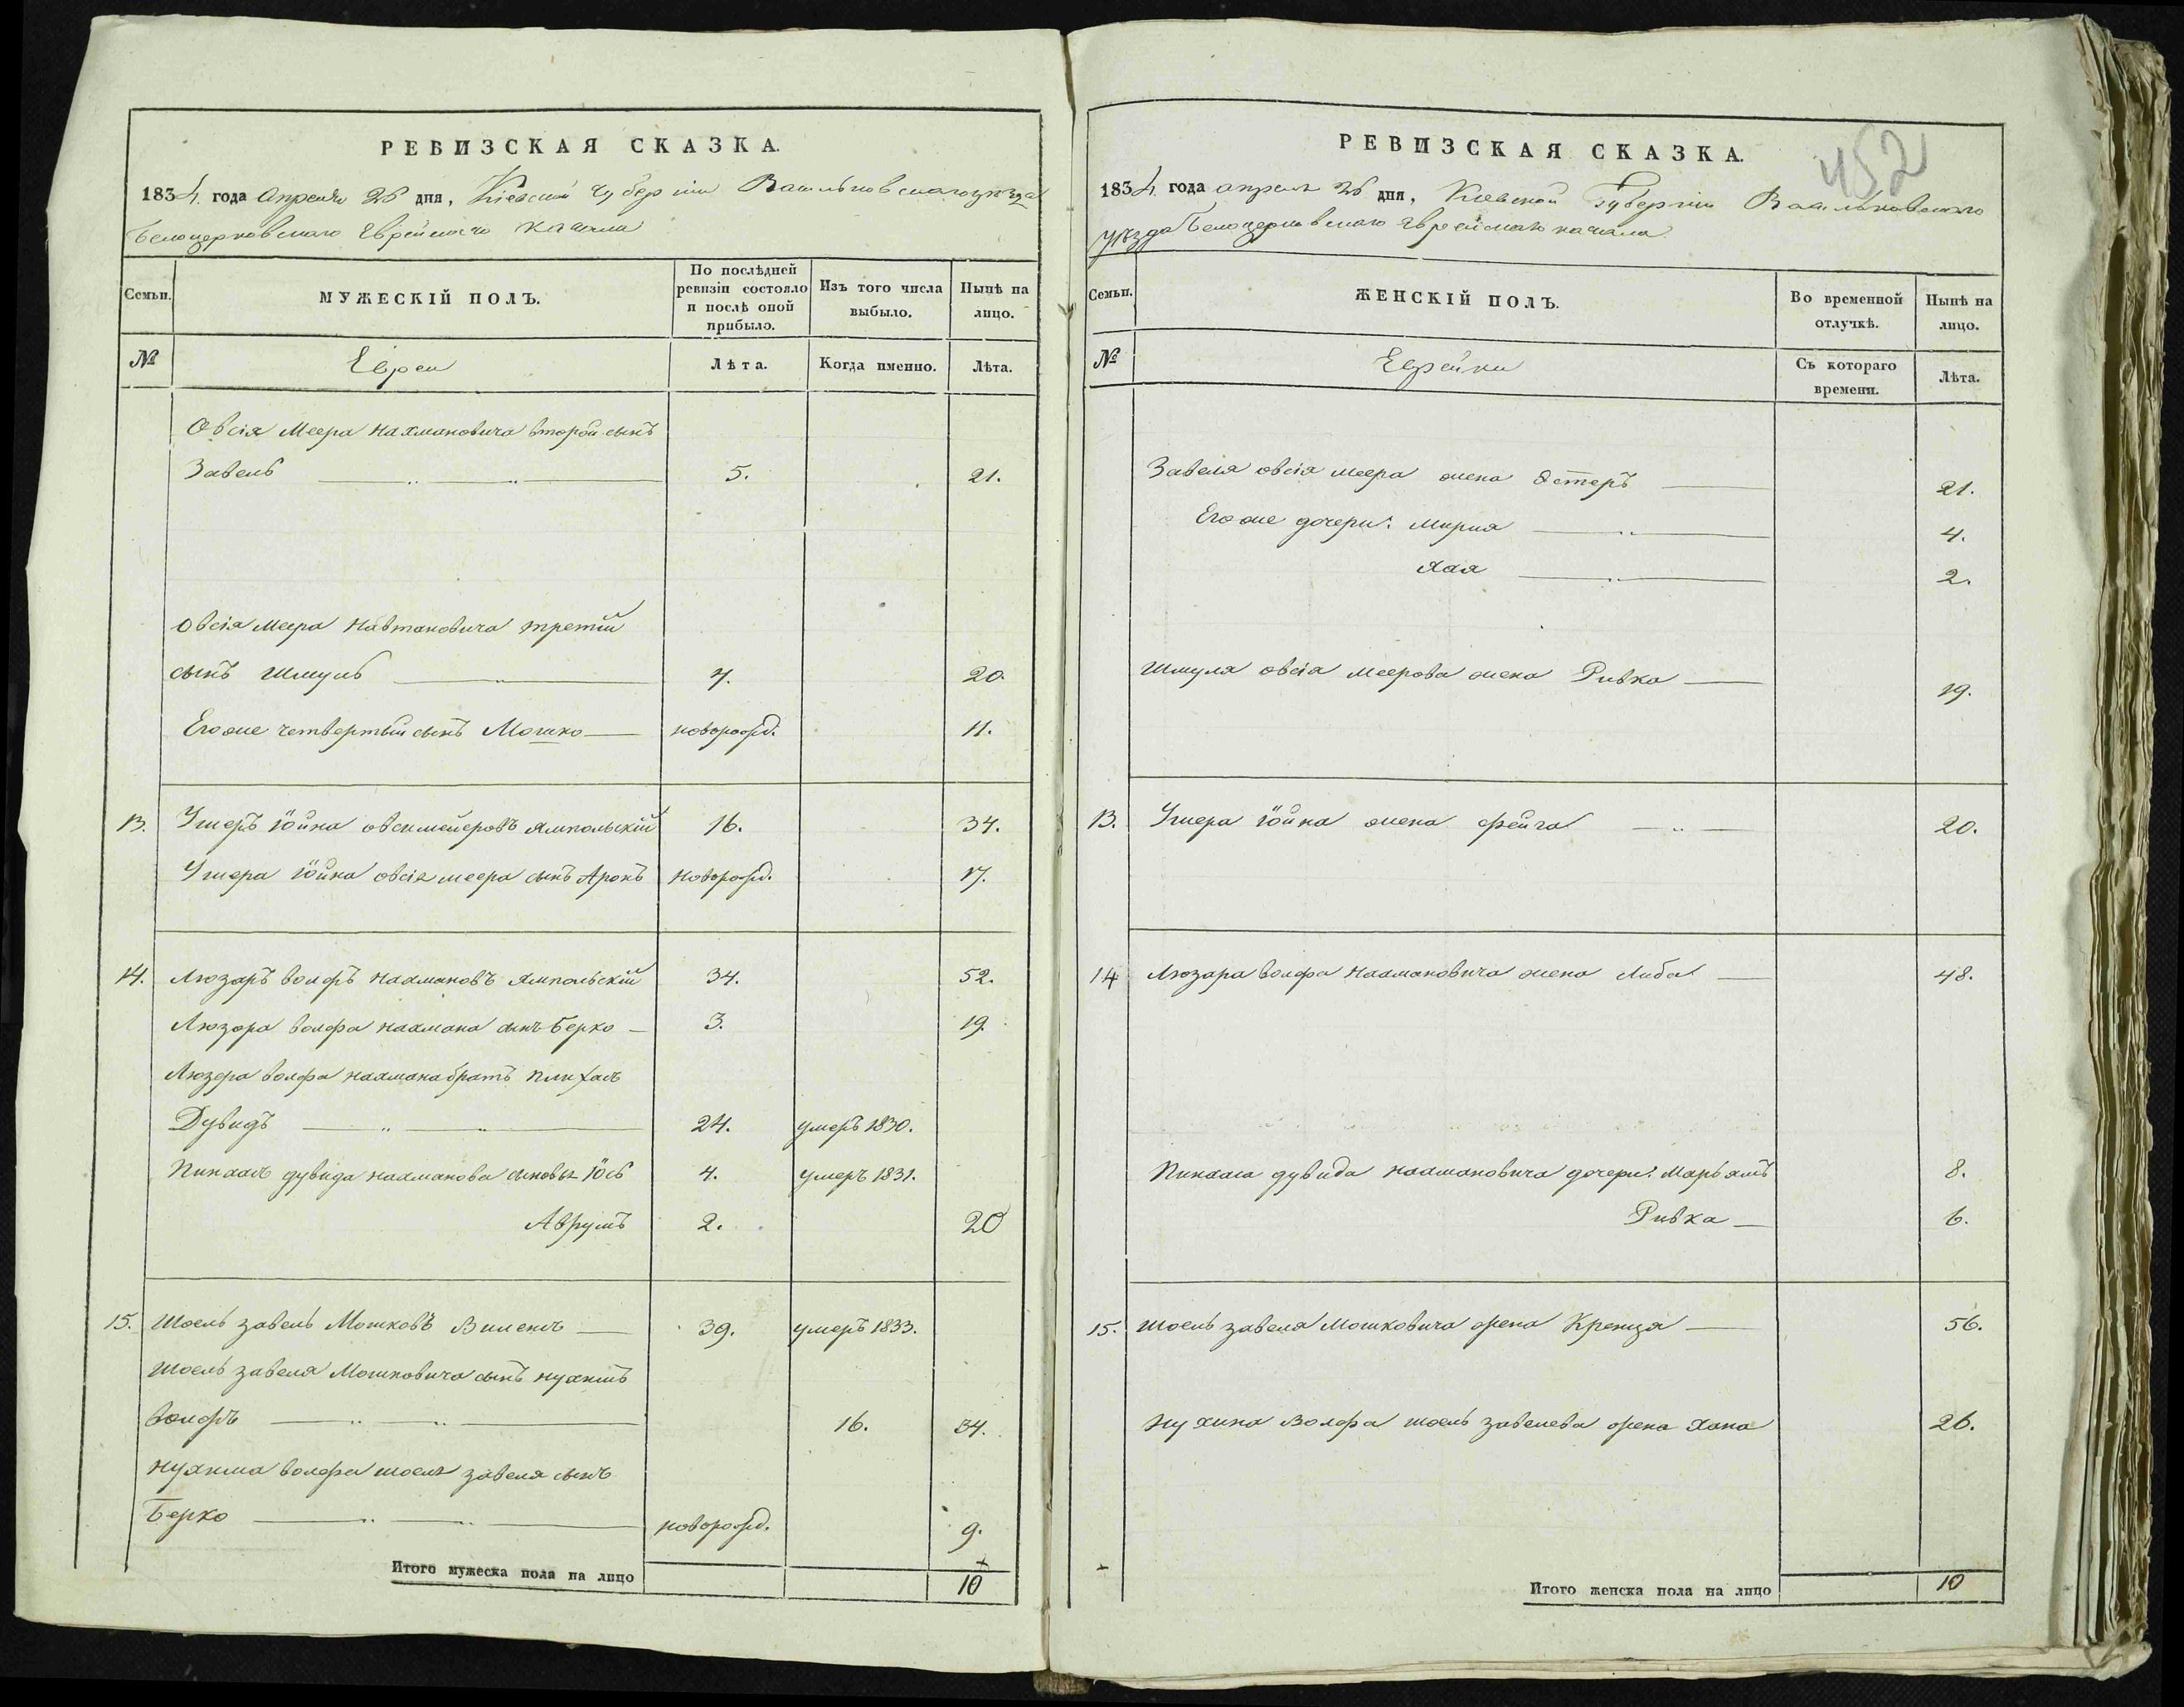 РЕВИЗСКАЯ СКАЗКА.
1834. года Апреля 26 дня, Кіевской Губерніи Васильковскаго уѣзда
Белоцерковскаго Еврейскаго Кагала
Семьи.
МУЖЕСКІЙ ПОЛЪ.
По послѣдней ревизіи состояло и послѣ оной прибыло.
Изъ того числа выбыло.
Нынѣ на лицо.
№
Евреи
Лѣта.
Когда именно.
Лѣта.
Овсія Меера Нахмановича второй сынъ
Завель 5. 21.
Овсія Меера Нахмановича третій
сынъ Шмуль 7. 20.
Его же четвертый сынъ Мошко новорожд. 11.
13. Ушеръ Іойна овсимейеровъ Ямпольскій 16. 34.
Ушера Іойна овсія меера сынъ Аронъ новорожд. 17.
14. Люзаръ Волфъ Нахмановъ Ямпольскій 34. 52.
Люзора Волфа Нахмана сынъ Берко 3. 19.
Люзера Волфа Нахмана братъ Пинхасъ
Дувидъ 24. умеръ 1830.
Пинхасъ дувида Нахманова сыновья Іось 4. умеръ 1831.
Аврумъ 2. 20
15. Шоель Завель Мошковъ Виленъ 39. умеръ 1833.
Шоель Завеля Мошковича сынъ Нухимъ
Волфъ 16. 34.
Нухима Волфа Шоеля Завеля сынъ
Берко новорожд. 9.
Итого мужеска пола на лицо 10
452
РЕВИЗСКАЯ СКАЗКА.
1834. года апреля 26 дня, Киевской Губерніи Васильковскаго
уѣзда Белоцерковскаго Еврейскаго кагала.
Семьи.
ЖЕНСКІЙ ПОЛЪ.
Во временной отлучкѣ.
Нынѣ на лицо.
№
Еврейки
Съ котораго времени.
Лѣта.
Завеля овсія меера жена Эстеръ 21.
Его же дочери: Мирия 4.
Хая 2.
Шмуля овсія Меерова жена Ривка 19.
13. Ушера Іойна жена Фейга 20.
14 Люзара Волфа Нахмановича жена Либа 48.
Пинхаса дувида Нахмановича дочери: Марьямъ 8.
Ривка 6.
15. Шоель Завеля Мошковича жена Кренця 56.
Нухима Волфа Шоель Завелева жена Хана 26.
Итого женска пола на лицо 10